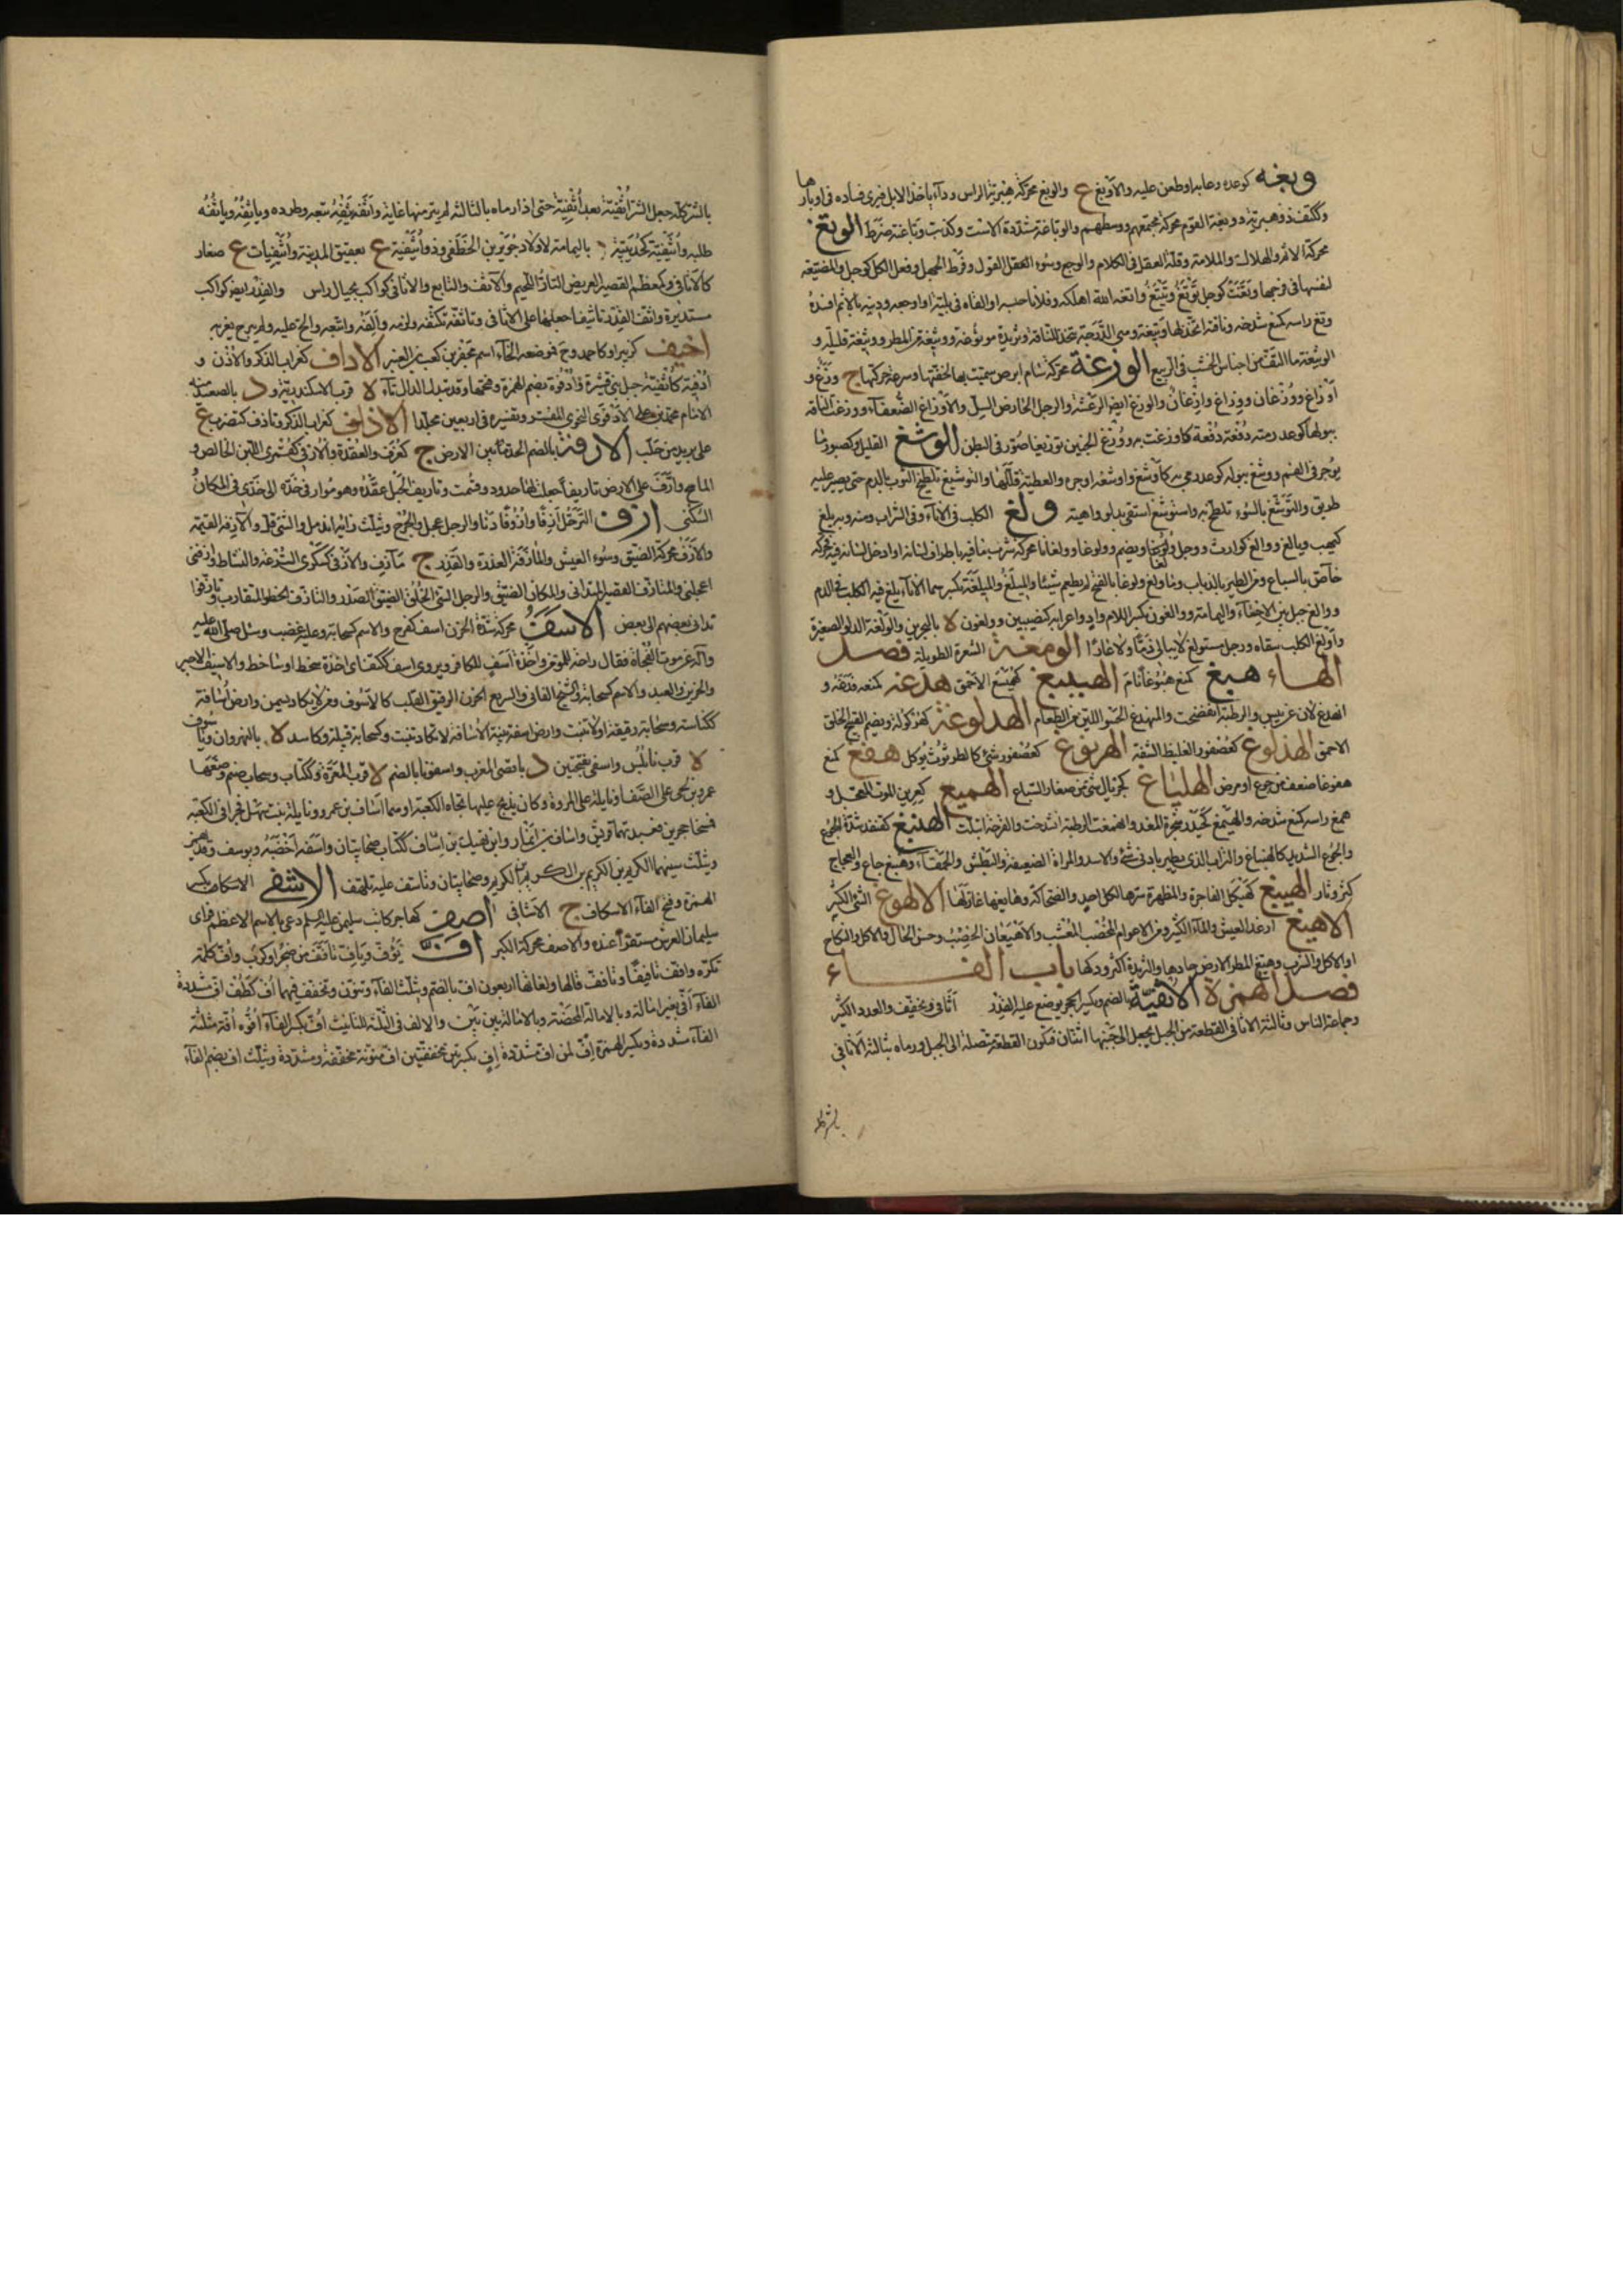 وبغه كوعده وعابه اوطعن عليه والاوبغ ع والوبغ محركة هبرية الراس وداء ياخذ الابل فيرى فساده فى اوبارها
وككتف ذو هبرية ووبغة القوم محركة مجتمعهم ووسطهم والوباغة مشددة الاست وكذبت وباغته ضرط الوتغ
محركة الاثم والهلاك والملامة وقلة العقل فى الكلام والوجع وسوء العقل القول وفرط الجهل وفعل الكل كوجل والمضيعة
لنفسها فى فرجها وتغت كوجل توتغ وتيتغ واتغه الله اهلكه وفلانا حبسه او القاه فى بلية او اوجعه ودينه بالاثم افسده
وثغ راسه كمنع شدخه وناقته اتخذ لها وثيغة وهى الدرجة تتخذ للناقة وثريدة موثوغة ووثيغة من المطر ووثيغة قليلة و
الوثيغة ما التف من اجناس العشب فى الربيع الوزغة محركة سام ابرص سميت بها لخفتها وسرعة حركتها ج وزغ و
اوزاغ ووزغان ووزاغ وازغان والوزغ ايضا الرعشة والرجل الحارض الفسل والاوزاغ الضعفاء ووزغت الناقة
ببولها كوعد رمته دفعة دفعة كاوزغت به ووزغ الجنين توزيغا صور فى البطن الوشغ القليل وكصبور ما
يوجر فى الفم ووشغ ببوله كوعد رمى به كاوشغ واوشغه اوجره والعطية قللها والتوشيغ تلطيخ الثوب بالدم حتى يصير عليه
طريق والتوشغ بالسوء تلطخ به واستوشغ استقى بدلو واهية ولغ الكلب فى الاناء وفى الشراب ومنه وبه يلغ
كيهب ويالغ وولغ كورث ووجل ولغا ويضم وولوغا وولغانا محركة شرب ما فيه باطراف لسانه او ادخل لسانه فيه فحركه
خاص بالسباع ومن الطير بالذباب وما ولغ ولوغا بالفتح لم يطعم شيئا والميلغ والميلغة بكسرهما الاناء يلغ فيه الكلب فى الدم
ووالغ جبل بين الاحفاء واليمامة ووالغون بكسر اللام واد واعرابه كنصيبين وولغون لا بالبحرين والولغة الدلو الصغيرة
واولغ الكلب سقاه ورجل مستولغ لا يبالى ذما ولا عارا الومغة الشعرة الطويلة فصل
الهاء هبغ كمنع هبوغا نام الهبيبغ كهميسع الاحمق هدغه كمنعه فدغه و
انهدغ لان عن يبس والرطبة انفضخت والمنهدغ الحسو اللين من الطعام الهدلوغة كهركولة ويضم القبيح الخلق
الاحمق الهذلوغ كعصفور الغليظ الشفة الهرنوغ كعصفور شىء كالطرثوث يوكل هفغ كمنع
هفوغا ضعف من جوع او مرض الهلياغ كجريال شىء من صغار السباع الهميغ كعرين الموت المعجل و
همغ راسه كمنع شدخه والهيمغ كحيدر شجرة المغد وانهمغت الرطبة انشدخت والقرحة ابتلت الهنبغ كقنفذ شدة الجوع
والجوع الشديد كالهنباغ والتراب الذى يطير بادنى شىء والاسد والمراة الضعيفة البطش والحمقاء وهنبغ جاع والعجاج
كثر وثار الهينغ كهيكل الفاجرة والمظهرة سرها لكل احد والضحاكة وهانغها غازلها الاهوغ الشىء الكثير
الاهيغ ارغد العيش والماء الكثير ومن الاعوام المخصب المعشب والاهيغان الخصب وحسن الحال والاكل والنكاح
او الاكل والشرب وهيغ المطر الارض جادها والثريدة اكثر ودكها باب الفاء
فصل الهمزة الاثفية بالضم ويكسر الحجر يوضع عليه القدر اثافى ويخفف والعدد الكثير
وجماعة الناس وثالثة الاثافى القطعة من الجبل يجعل الى جنبها اثنتان فتكون القطعة متصلة الى الجبل ورماه بثالثة الاثافى
بالشر كله
بالشر كله جعل الشر اثفية بعد اثفية حتى اذا رماه بالثالثة لم يترك منها غاية واثفه يثفه تبعه وطرده وياثفه وياثفه
طلبه واثيفية كحديبية باليمامة لاولاد جرير بن الخطفى وذو اثيفية ع بعقيق المدينة واثيفيات ع صغار
كالاثافى وكمعظم القصير العريض التار اللحيم والاثف والتابع والاثافى كواكب بحيال راس والقدر ايضا كواكب
مستديرة واثف القدر تاثيفا جعلها على الاثافى وتاثفه تكنفه ولزمه والفه واتبعه والح عليه ولم يبرح يغريه
اخيف كزبير او كاحمد وح فموضعه الخاء اسم مجفر بن كعب بن العنبر الاداف كغراب الذكر والاذن و
ادفية كاثفية جبل لبنى قشير وادفوة بضم الهمزة وفتحها وقد تبدل الدال تاء لا قرب الاسكندرية ود بالصعيد منه
الامام محمد بن على الادفوى النحوى المفسر وتفسيره فى اربعين مجلدا الاذاف كغراب الذكر وتاذف كتضرب ع
على بريد من حلب الارفة بالضم الحد بين الارضين ج كغرف والعقدة والارفى كقمرى اللبن الخالص و
الماسح وارف على الارض تاريفا جعلت لها حدود وقسمت وتاريف الحبل عقده وهو موارفى حده الى حدى فى المكان
السكنى ازف الترحل ازفا وازوفا دنا والرجل عجل والجرح ويثلث زايه اندمل والشىء قل والازفة القيامة
والازف محركة الضيق وسوء العيش والمازفة العذرة والقذر ج مازف والازفى كسكرى السرعة والنشاط وازفنى
اعجلنى والمتازف القصير المتدانى والمكان الضيق والرجل السيئ الخلق الضيق الصدر والتازف الخطو المتقارب وتازفوا
تدانى بعضهم الى بعض الاسف محركة شدة الحزن اسف كفرح والاسم كسحابة وعليه غضب وسئل صلى الله عليه
واله عن موت الفجاة فقال راحة للمومن واخذة اسف للكافر ويروى اسف ككتف اى اخذة سخط او ساخط والاسيف الاجير
والحزين والعبد والاسم كسحابة والشيخ الفانى والسريع الحزن الرقيق القلب كالاسوف ومن لا يكاد يسمن وارض اسافة
ككناسة وسحابة رقيقة او لا تنبت وارض اسفة بينة الاسافة لا تكاد تنبت وكسحابة قبيلة وكاسد لا بالنهروان وياسوف
لا قرب نابلس واسفى بفتحتين د باقصى المغرب واسفونا بالضم لا قرب المعرة وككتاب وسحاب صنم وضعها
عمرو بن لحى على الصفا ونايلة على المروة وكان يذبح عليهما تجاه الكعبة او هما اساف بن عمرو ونايلة بنت سهل فجرا فى الكعبة
فمسخا حجرين فعبدتهما قريش واساف بن انمار وابن نهيك بن اساف ككتاب صحابيان واسفه اغضبه ويوسف وقد يهمز
ويثلث سينهما الكريم بن الكريم بن الكريم بن الكريم وصحابيان وتاسف عليه تلهف الاشفى الاسكاف بكسر
الهمزة وفتح الفاء الاسكاف ج الاشافى اصف كهاجر كاتب سليمن عليه السلم دعى بالاسم الاعظم فراى
سليمان العرش مستقرا عنده والاصف محركة الكبر اف يوف ويئف تافف من ضجر او كرب واف كلمة
تكره وافف تافيفا وتافف قالها ولغاتها اربعون اف بالضم ويثلث الفاء وتنون وتخفف فيهما اف كطف اف مشددة
الفاء افى بغير امالة وبالامالة المحضة وبالامالة بين بين والالف فى الثلثة للتانيث اف بكسر الفاء افوه افة مثلثة
الفاء مشددة وبكسر الهمزة اف لمن اف مشددة اف بكسرتين مخففتين اف منونة مخففة ومشددة ويثلث اف بضم الفاء